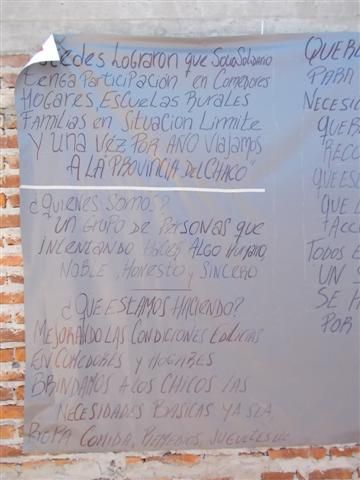 Ustedes Lograron que SoloSolidario
Tenga Participación en Comedores
Hogares, Escuelas Rurales
Familias en Situación Limmite
y una vez por año viajamos
A LA "PROVINCIA DEL CHACO"
¿Quienes somos?
"un Grupo de Personas que
intentando Hacer Algo Humano,
Noble, Honesto y Sincero
¿QUE ESTAMOS HACIENDO?
MEJORANDO LAS CONDICIONES EDILICIAS
EN COMEDORES y HOGARES
BRINDAMOS A LOS CHICOS LAS
NECESIDADES BASICAS YA SEA,
ROPA COMIDA, REMEDIOS, JUGUETES
PARA
POR